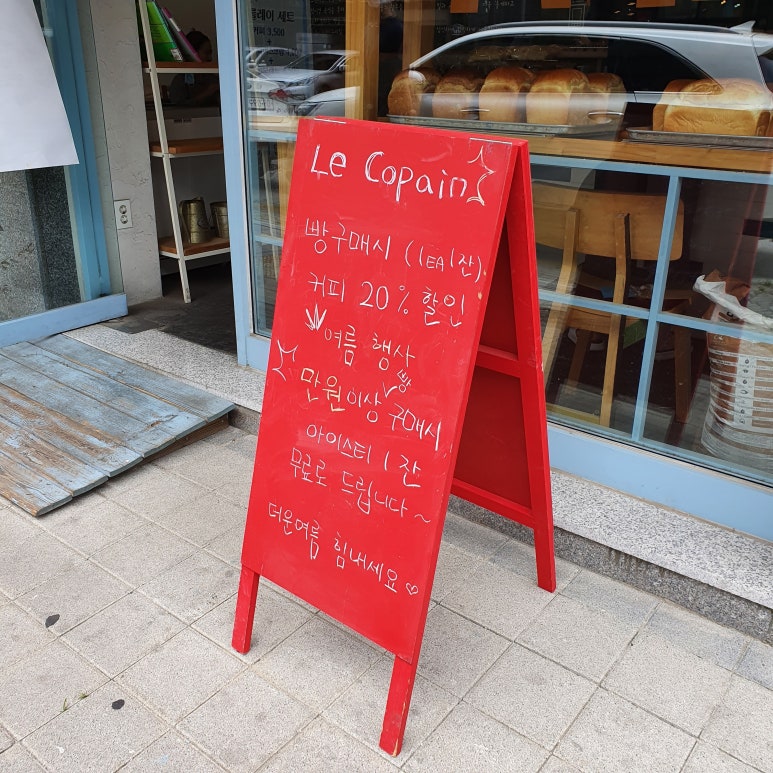 플레이 세트
커피 3,500
Le Copain
빵구매시 (1EA1잔)
커피 20% 할인
여름 행사
만원이상 빵 구매시
아이스티 1잔
무료로 드립니다~
더운여름 힘내세요♡